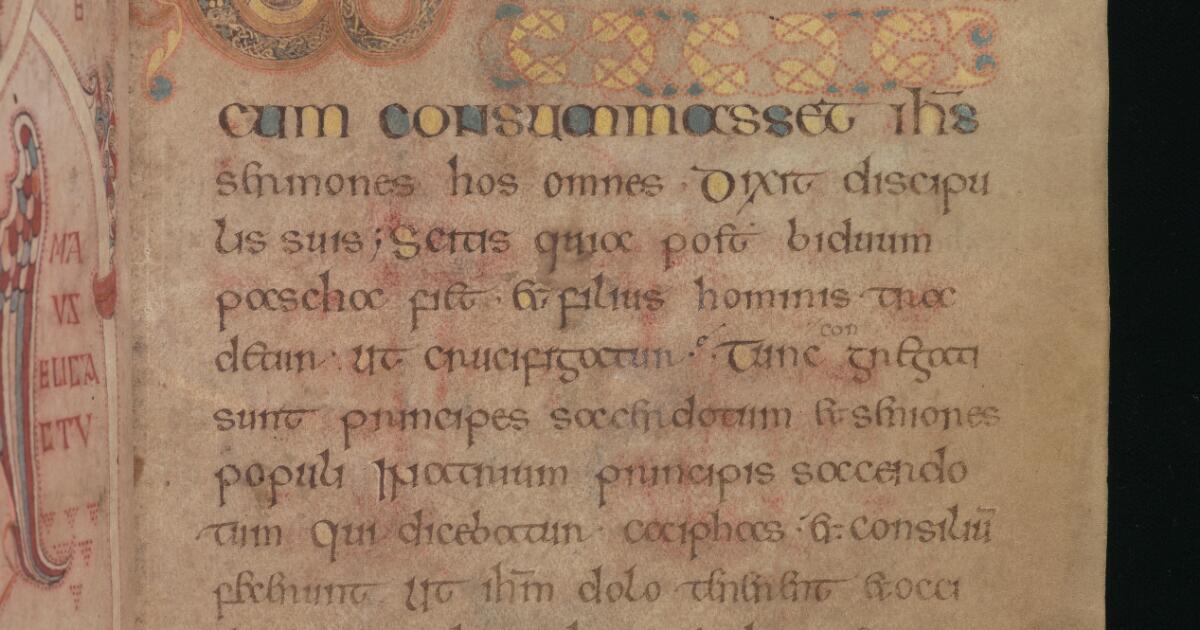 MA
US
EUCA
CTU
cum consummasset ihs
sermones hos omnes Dixit discipu
lis suis; Scitis quia post biduum
pascha fiet · & filius hominis tra
detur · ut crucifigatur · Tunc con gregati
sunt principes sacerdotum & seniores
populi In atrium principis sacerdo
tum qui dicebatur · caciphas · & consiliū
fecerunt Ut ihm dolo tenerent & occi